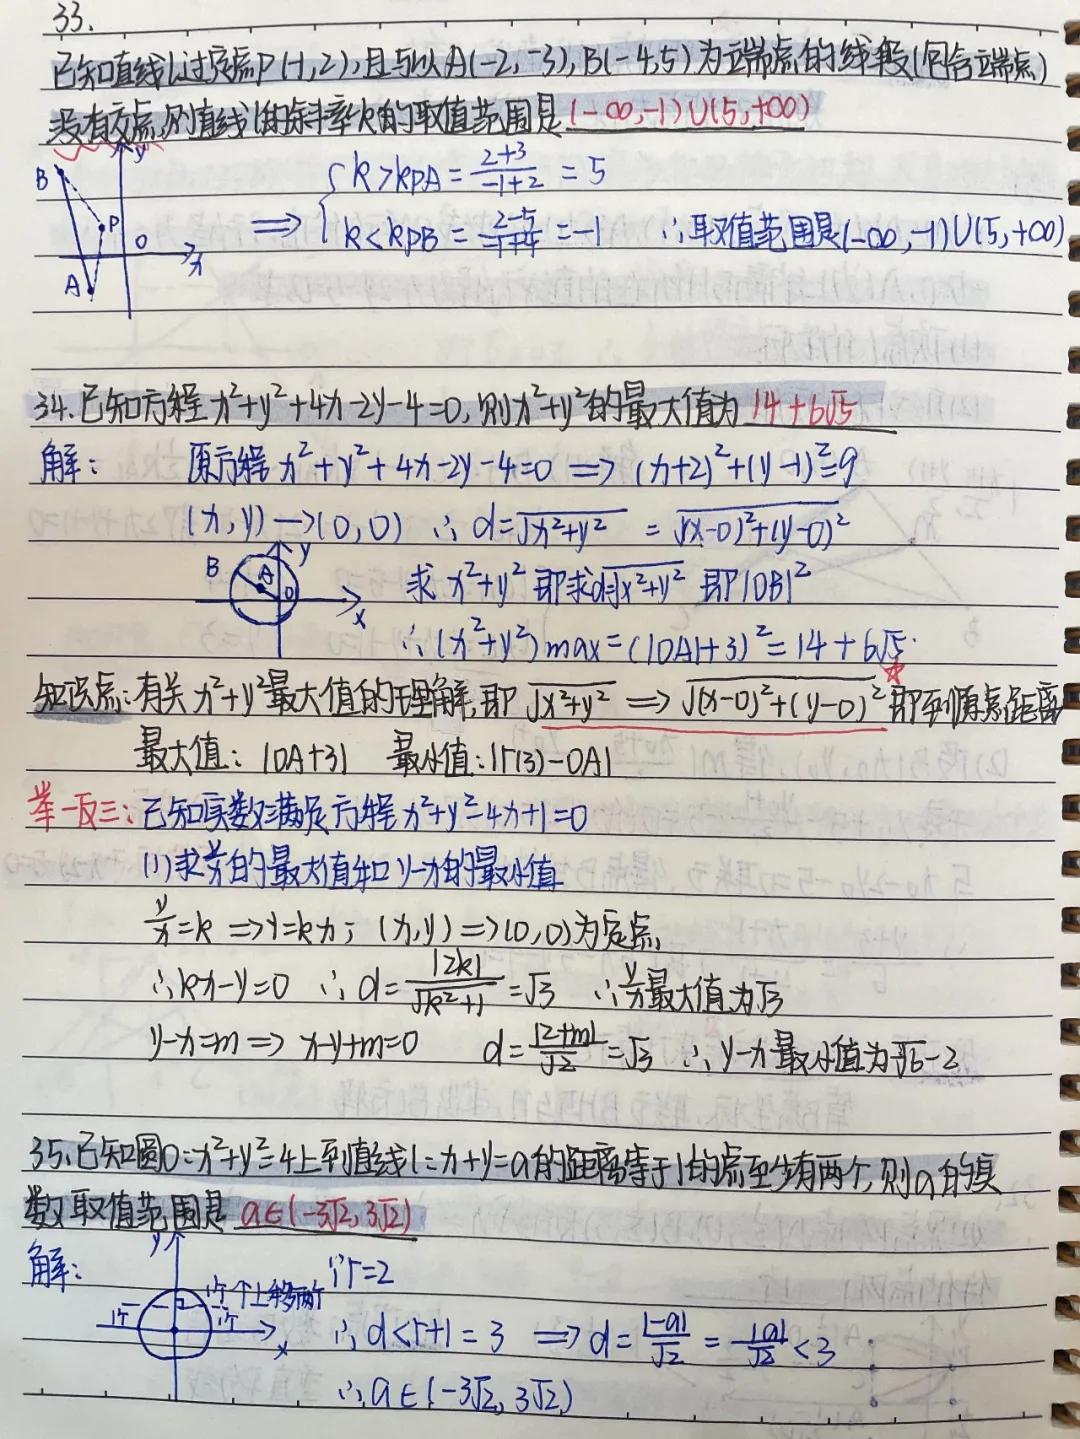 33.
已知直线l过定点P(-1,2),且与以A(-2,-3),B(-4,5)为端点的线段(包含端点)
没有交点,则直线l的斜率k的取值范围是(-∞,-1)∪(5,+∞)
y
B
P
O
x
A
⟹ { k>kPA=(2+3)/(-1+2)=5
k<kPB=(2-5)/(-1+4)=-1 ∴取值范围是(-∞,-1)∪(5,+∞)
34.已知方程x²+y²+4x-2y-4=0,则x²+y²的最大值为 14+6√5
解: 原方程x²+y²+4x-2y-4=0 ⟹ (x+2)²+(y-1)²=9
(x,y)→(0,0) ∴d=√(x²+y²) = √((x-0)²+(y-0)²)
B A O y x
求x²+y² 即求d=√(x²+y²) 即|OB|²
∴(x²+y²)max=(|OA|+3)²=14+6√5.
知识点:有关x²+y²最大值的理解,即√(x²+y²) ⟹ √((x-0)²+(y-0)²) 即到原点距离
最大值: |OA+3| 最小值:|r(3)-OA|
举一反三:已知实数x满足方程x²+y²-4x+1=0
(1)求y/x的最大值和y-x的最小值
y/x=k ⟹y=kx; (x,y)⟹(0,0)为定点,
∴kx-y=0 ∴d=|2k|/√(k²+1)=√3 ∴y/x最大值为√3
y-x=m⟹ x-y+m=0 d=|2+m|/√2=√3 ∴y-x最小值为√6-2
35.已知圆O:x²+y²=4上到直线l:x+y=a的距离等于1的点至少有两个,则a的实
数取值范围是 a∈(-3√2,3√2)
解:
y
1个
1个上移两个
1个
x
∵r=2
∴d<r+1=3 ⟹d=|-a|/√2=|a|/√2<3
∴a∈(-3√2,3√2)